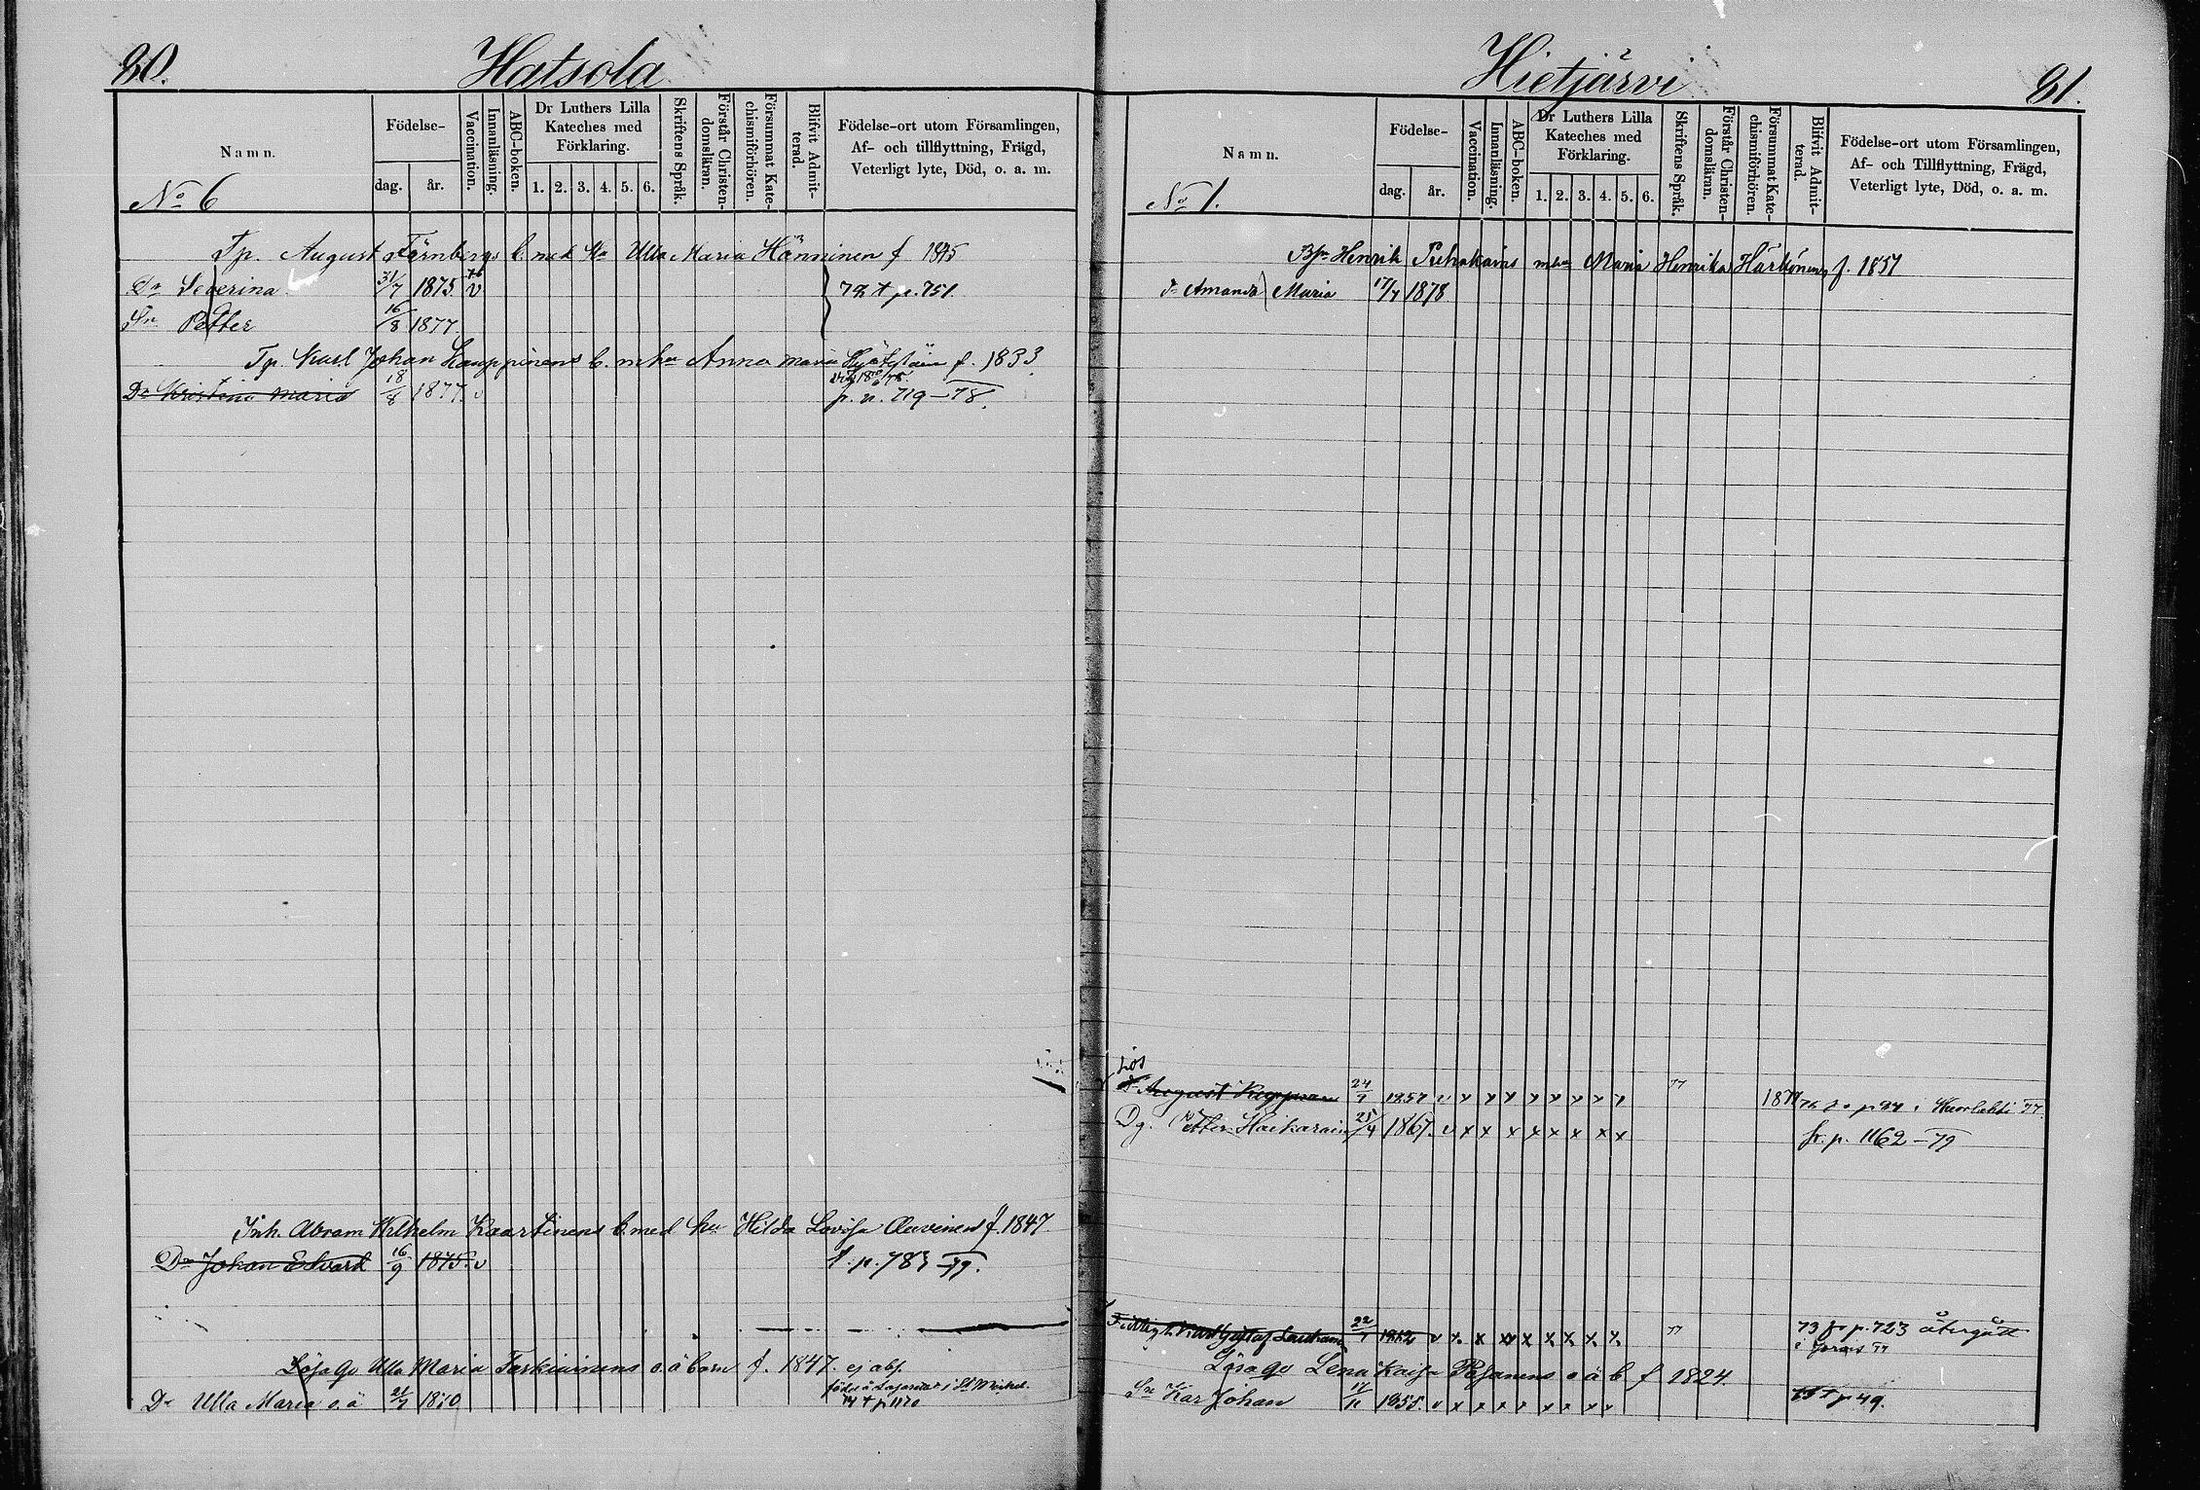 80.
Hatsola
Namn.
No 6
Födelse-
dag.
år.
Vaccination.
Innanläsning.
ABC-boken.
Dr Luthers Lilla
Kateches med
Förklaring.
1. 2. 3. 4. 5. 6.
Skriftens Språk.
Förstår Christen-
domsläran.
Försummat Kate-
chismiförhören.
Blifvit Admit-
terad.
Födelse-ort utom Församlingen,
Af- och tillflyttning, Frägd,
Veterligt lyte, Död, o. a. m.
Tp. August Färnbergs b. med Ulla Maria Hänninen f 1845
Dr Severina 31/7 1875 v 79 + p. 751.
Sn Petter 16/8 1877
Tp. Karl Johan Kauppinens b. m hu Anna Maria f. 1833
Dr Kristina Maria 18/8 1877 v p. n. 719–78.
Inh. Abram Wilhelm Kaartinens b. med hu Hilda Lovisa Auvinen f. 1847
Johan Edvard 16/9 1875 v p. 783–79.
Lösa qv Ulla Maria Tarkiainens o. ä barn f. 1847.
Dr Ulla Maria o. ä 21/7 1870
Hietjärvi
81.
Namn.
No 1.
Födelse-
dag.
år.
Vaccination.
Innanläsning.
ABC-boken.
Dr Luthers Lilla
Kateches med
Förklaring.
1. 2. 3. 4. 5. 6.
Skriftens Språk.
Förstår Christen-
domsläran.
Försummat Kate-
chismiförhören.
Blifvit Admit-
terad.
Födelse-ort utom Församlingen,
Af- och Tillflyttning, Frägd,
Veterligt lyte, Död, o. a. m.
Henrik Puhakains m hu Maria Henrika Härkönens f. 1857
Amanda Maria 17/7 1878
Lös
August 24/7 1857 v x x x x x x x x 77 p 94 i 77
Dg. Petter Haikarain 25/4 1867 v x x x x x x x x fr. p. 1162–79
Gustaf 22/7 1862 v x x x x x x x x 77 73 fr p. 723 återgått
Lösa qv Lena Kaisa o ä b f 1824.
Sn Kar Johan 17/11 1855 v x x x x x x x p 49.